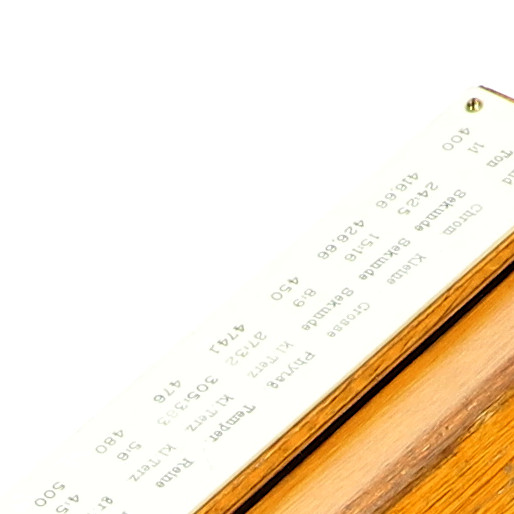 Ton
1:1
400
Chrom
Sekunde
24:25
416,66
Kleine
Sekunde
15:16
426,66
Grosse
Sekunde
8:9
450
Phytag
kl Terz
27:32
474,1
Temper
kl Terz
305:383
476
Reine
kl Terz
5:6
480
gr
4:5
500